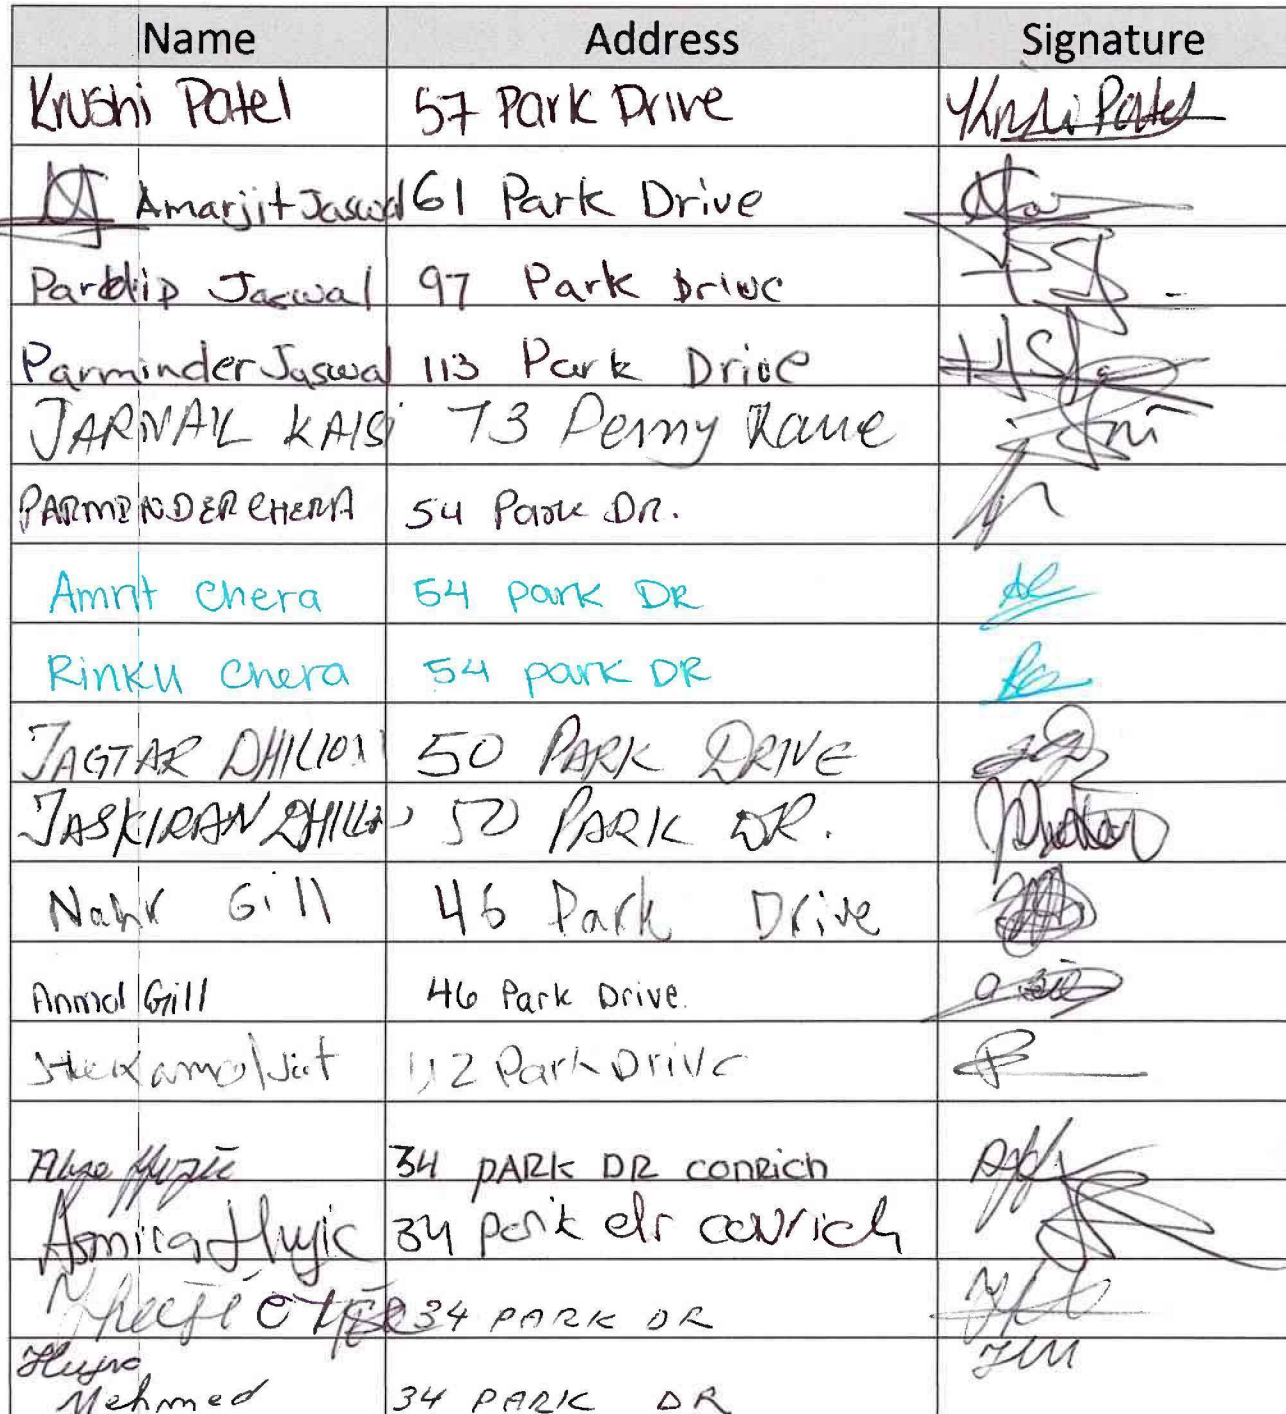 Name Address Signature
Krushi Patel 57 Park Drive Krushi Patel
Amarjit Jaswal 61 Park Drive
Pardip Jaswal 97 Park Drive
Parminder Jaswal 113 Park Drive
JARNAIL KAISI 73 Penny Lane
PARMINDER CHERA 54 Park DR.
Amrit Chera 54 park DR
Rinku Chera 54 park DR
JAGTAR DHILLON 50 PARK DRIVE
JASKIRAN DHILLON 50 PARK DR.
Gill 46 Park Drive
Anmol Gill 46 Park Drive.
112 Park Drive
34 PARK DR conRich
Asmira Hujic 34 park dr conrich
34 PARK DR
Mehmed 34 PARK DR